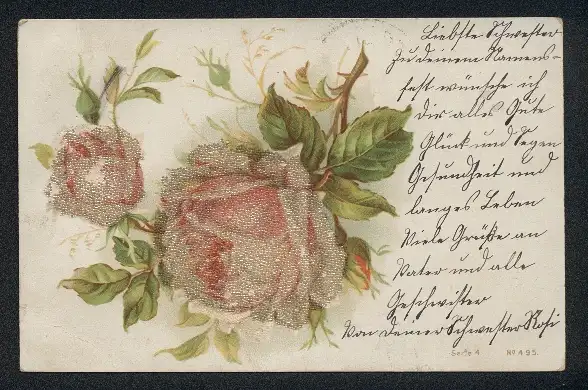 Liebste Schwester
Zu deinem Namens-
fest wünsche ich
Dir alles Gute
Glück und Segen
Gesundheit und
langes Leben
Viele Grüße an
Vater und alle
Geschwister
Von deiner Schwester Rosi
Serie 4 No 495.